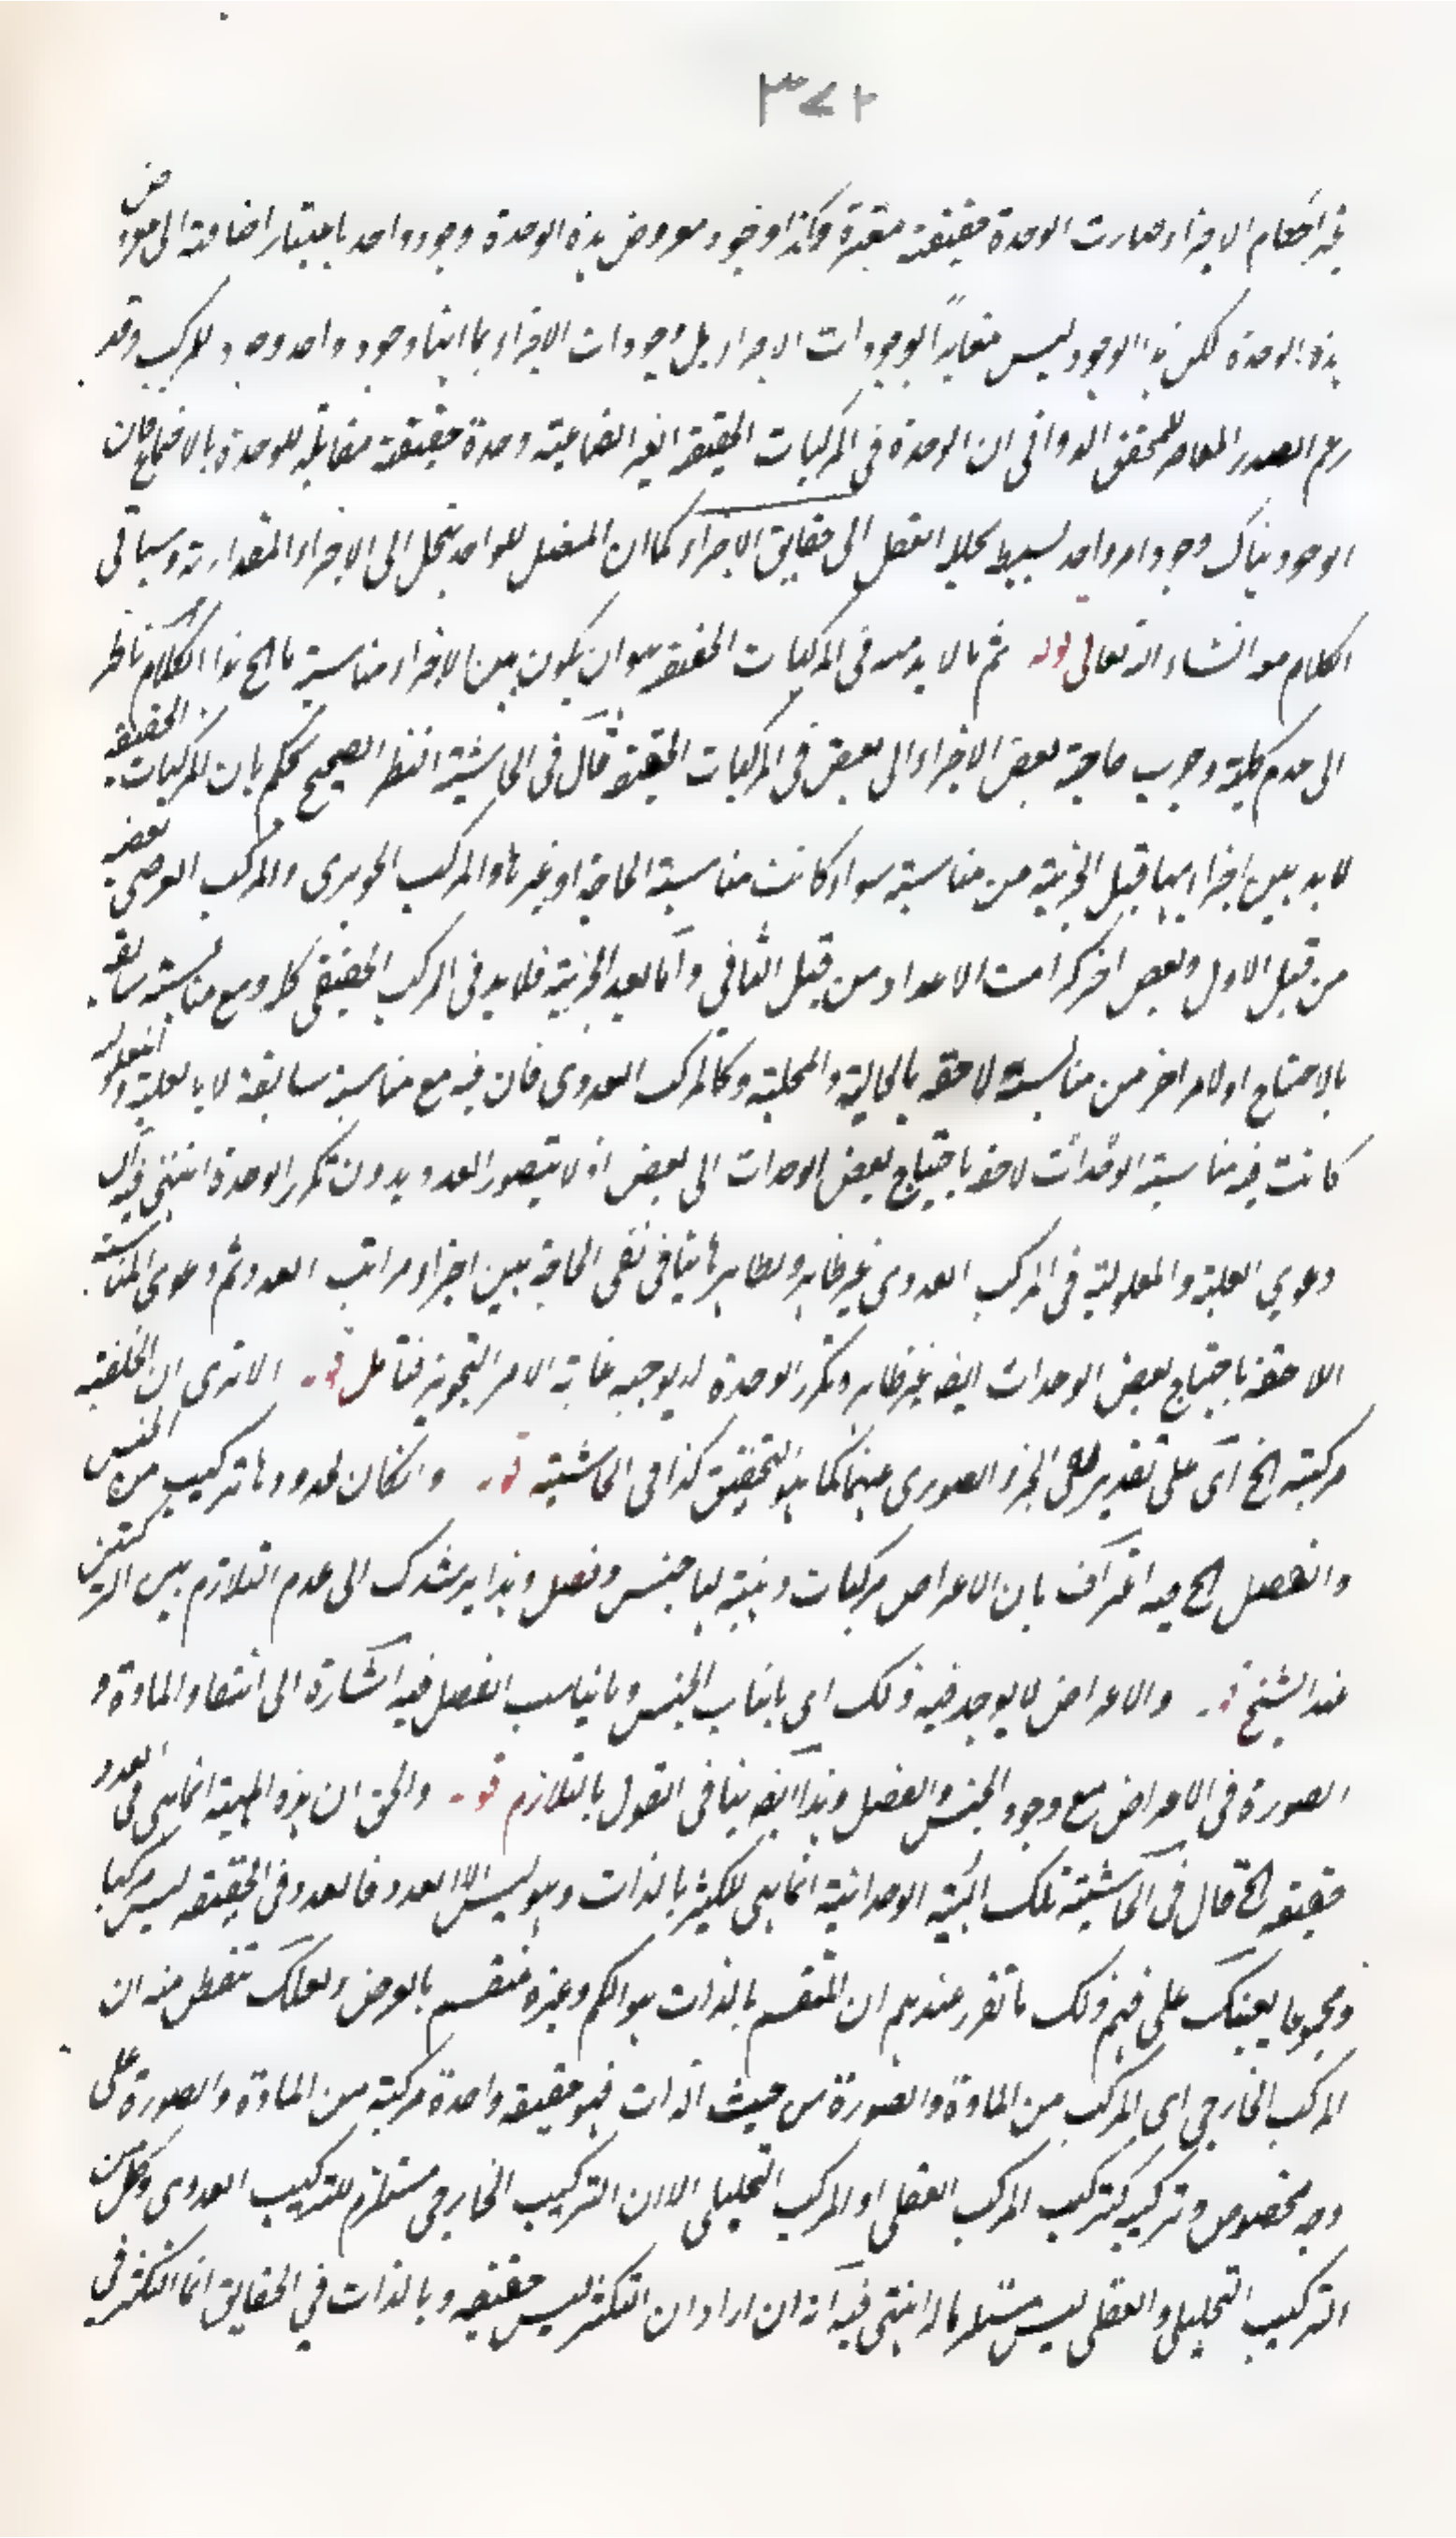 ٣٧٢
غير احكام الاجزاء صارت الوحدة حقيقة معتبرة وكذا وجود معروض هذه الوحدة وجود واحد باعتبار اضافته الى معروض
هذه الوحدة لكن هذا الوجود ليس مغايراً لوجودات الاجزاء بل وجودات الاجزاء بما انها وجود واحد وجود للمركب وقد
زعم الصدر المعاصر للمحقق الدواني ان الوحدة في المركبات الحقيقة الغير الصناعية وحدة حقيقة مقابلة للوحدة بالاجتماع فان
الوجود هناك وجود امر واحد بسيط يحلله العقل الى حقايق الاجزاء كما ان المتصل الواحد ينحل الى الاجزاء المقدارية وسياتي
الكلام معه انشاء الله تعالى قوله ثم ما لا بد منه في المركبات الحقيقة هو ان يكون بين الاجزاء مناسبة ما الخ هذا الكلام ناظر
الى عدم كلية وجوب حاجة بعض الاجزاء الى بعض في المركبات الحقيقة قال في الحاشية النظر الصحيح يحكم بان للمركبات الحقيقة
لا بد بين اجزائها قبل الجزئية من مناسبة سواء كانت مناسبة الحاجة او غيرها والمركب الجوهري والمركب العرضي بعضه
من قبل الاول وبعض اخر كمراتب الاعداد من قبل الثاني واما بعد الجزئية فلا بد في المركب الحقيقي كله ومع مناسبة سابقة
بالاحتياج او لامر اخر من مناسبة لاحقة بالحالية والمحلية وكالمركب العددي فان فيه مع مناسبة سابقة لا بالعلية والمعلولية
كانت فيه مناسبة الوحدات لاحقة باحتياج بعض الوحدات الى بعض اذ لا يتصور العدد بدون تكرر الوحدة انتهى فيه ان
دعوى العلية والمعلولية في المركب العددي غير ظاهر وبظاهرها ينافي نفي الحاجة بين اجزاء مراتب العدد ثم دعوى المناسبة
اللاحقة باحتياج بعض الوحدات ايضا غير ظاهر وتكرر الوحدة لا يوجبه غاية الامر التجويز فتامل قوله الا ترى ان الخلقية
مركبة الخ اي على تقدير نفي الجزء الصوري عنها كما هو التحقيق كذا في الحاشية قوله وان كان لحدودها تركيب من الجنس
والفصل الخ فيه اعتراف بان الاعراض مركبات ذهنية لها جنس وفصل وهذا يرشدك الى عدم التلازم بين التركيبين
عند الشيخ قوله والاعراض لا يوجد فيه ذلك اي ما يناسب الجنس وما يناسب الفصل فيه اشارة الى انتفاء المادة و
الصورة في الاعراض مع وجود الجنس والفصل وهذا ايضا ينافي القول بالتلازم قوله والحق ان هذه الهيئة انما هي في العدد
حقيقة الخ قال في الحاشية تلك الهيئة الوحدانية انما هي للكثير بالذات وهو ليس الا العدد فالعدد في الحقيقة ليس مركبا
ومجموعا يعينك على فهم ذلك ما تقرر عندهم ان المنقسم بالذات هو الكم وغيره منقسم بالعرض ولعلك تتفطن منه ان
المركب الخارجي اي المركب من المادة والصورة من حيث الذات فهو حقيقة واحدة مركبة من المادة والصورة على
وجه مخصوص وتركيبه كتركيب المركب العقلي او المركب التحليلي الا ان التركيب الخارجي مستلزم للتركيب العددي وكل من
التركيب التحليلي والعقلي ليس مستلزما له انتهى فيه انه ان اراد ان التكثر ليس حقيقة وبالذات في الحقايق انما التكثر في